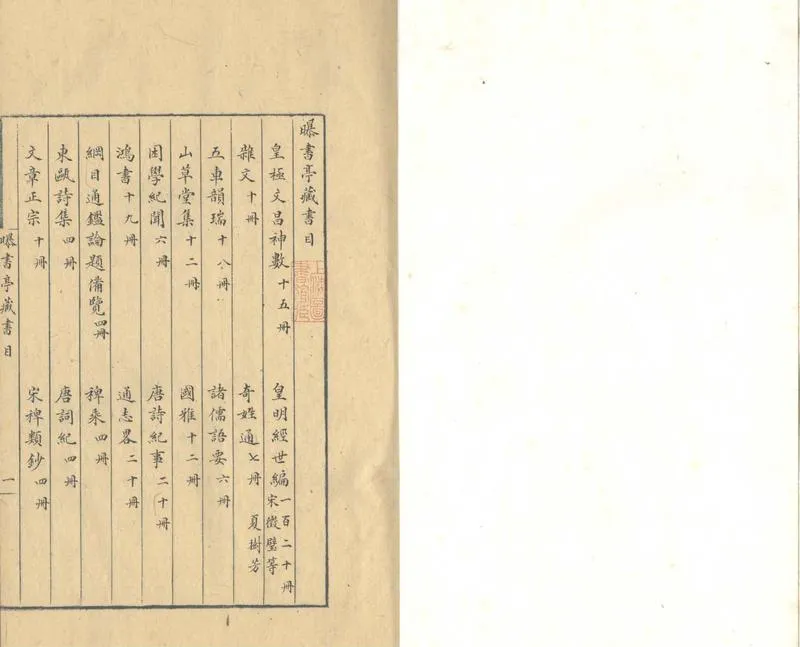 曝書亭藏書目
皇極文昌神數十五冊
皇明經世編一百二十冊 宋徵璧等
雜文十冊
奇姓通七冊 夏樹芳
五車韻瑞十八冊
諸儒語要六冊
山草堂集十二冊
國雅十二冊
困學紀聞六冊
唐詩紀事二十冊
鴻書十九冊
通志畧二十冊
綱目通鑑論題備覽四冊
稗乘四冊
東甌詩集四冊
唐詞紀四冊
文章正宗十冊
宋稗類鈔四冊
曝書亭藏書目
一
上海圖書館藏